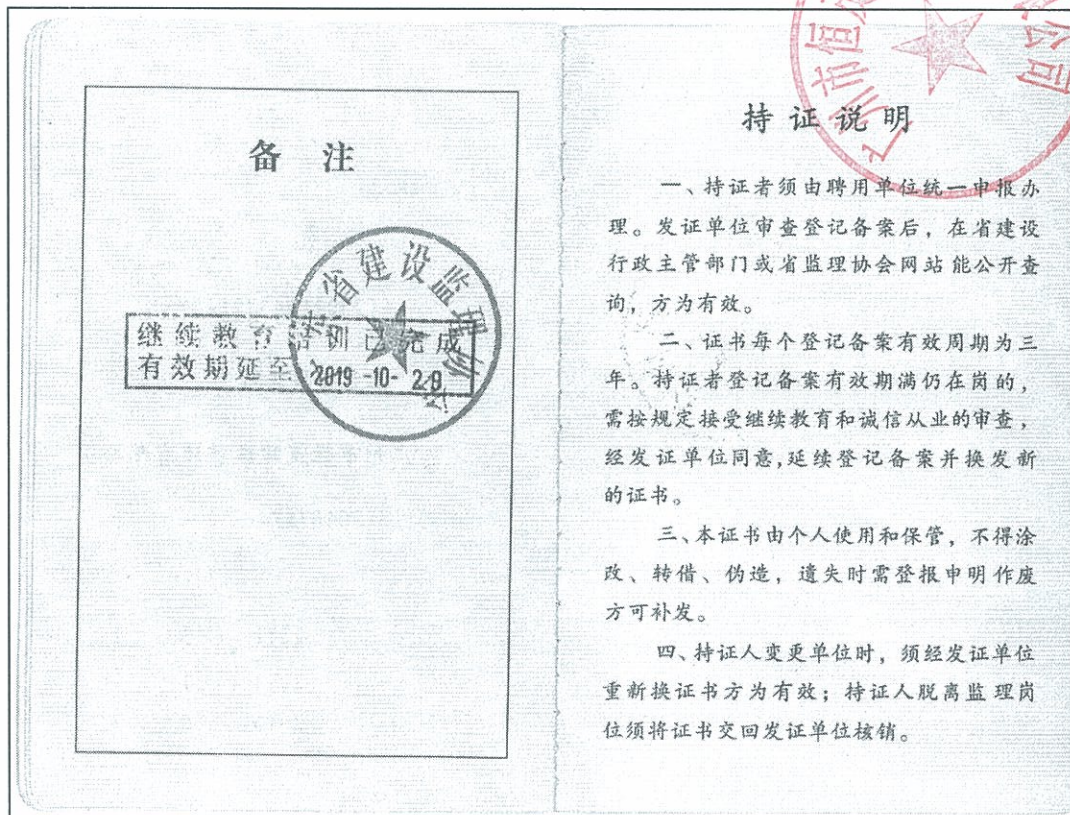 备 注
省建设监理协会
继续教育培训已完成
有效期延至 2019 -10- 29
持证说明
一、持证者须由聘用单位统一申报办
理。发证单位审查登记备案后，在省建设
行政主管部门或省监理协会网站能公开查
询，方为有效。
二、证书每个登记备案有效周期为三
年。持证者登记备案有效期满仍在岗的，
需按规定接受继续教育和诚信从业的审查，
经发证单位同意，延续登记备案并换发新
的证书。
三、本证书由个人使用和保管，不得涂
改、转借、伪造，遗失时需登报申明作废
方可补发。
四、持证人变更单位时，须经发证单位
重新换证书方为有效；持证人脱离监理岗
位须将证书交回发证单位核销。